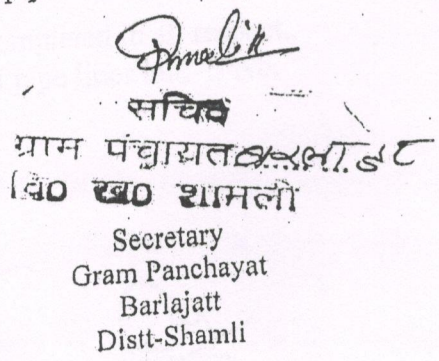 सचिव
ग्राम पंचायत बरला जट
वि० ख० शामली
Secretary
Gram Panchayat
Barlajatt
Distt-Shamli